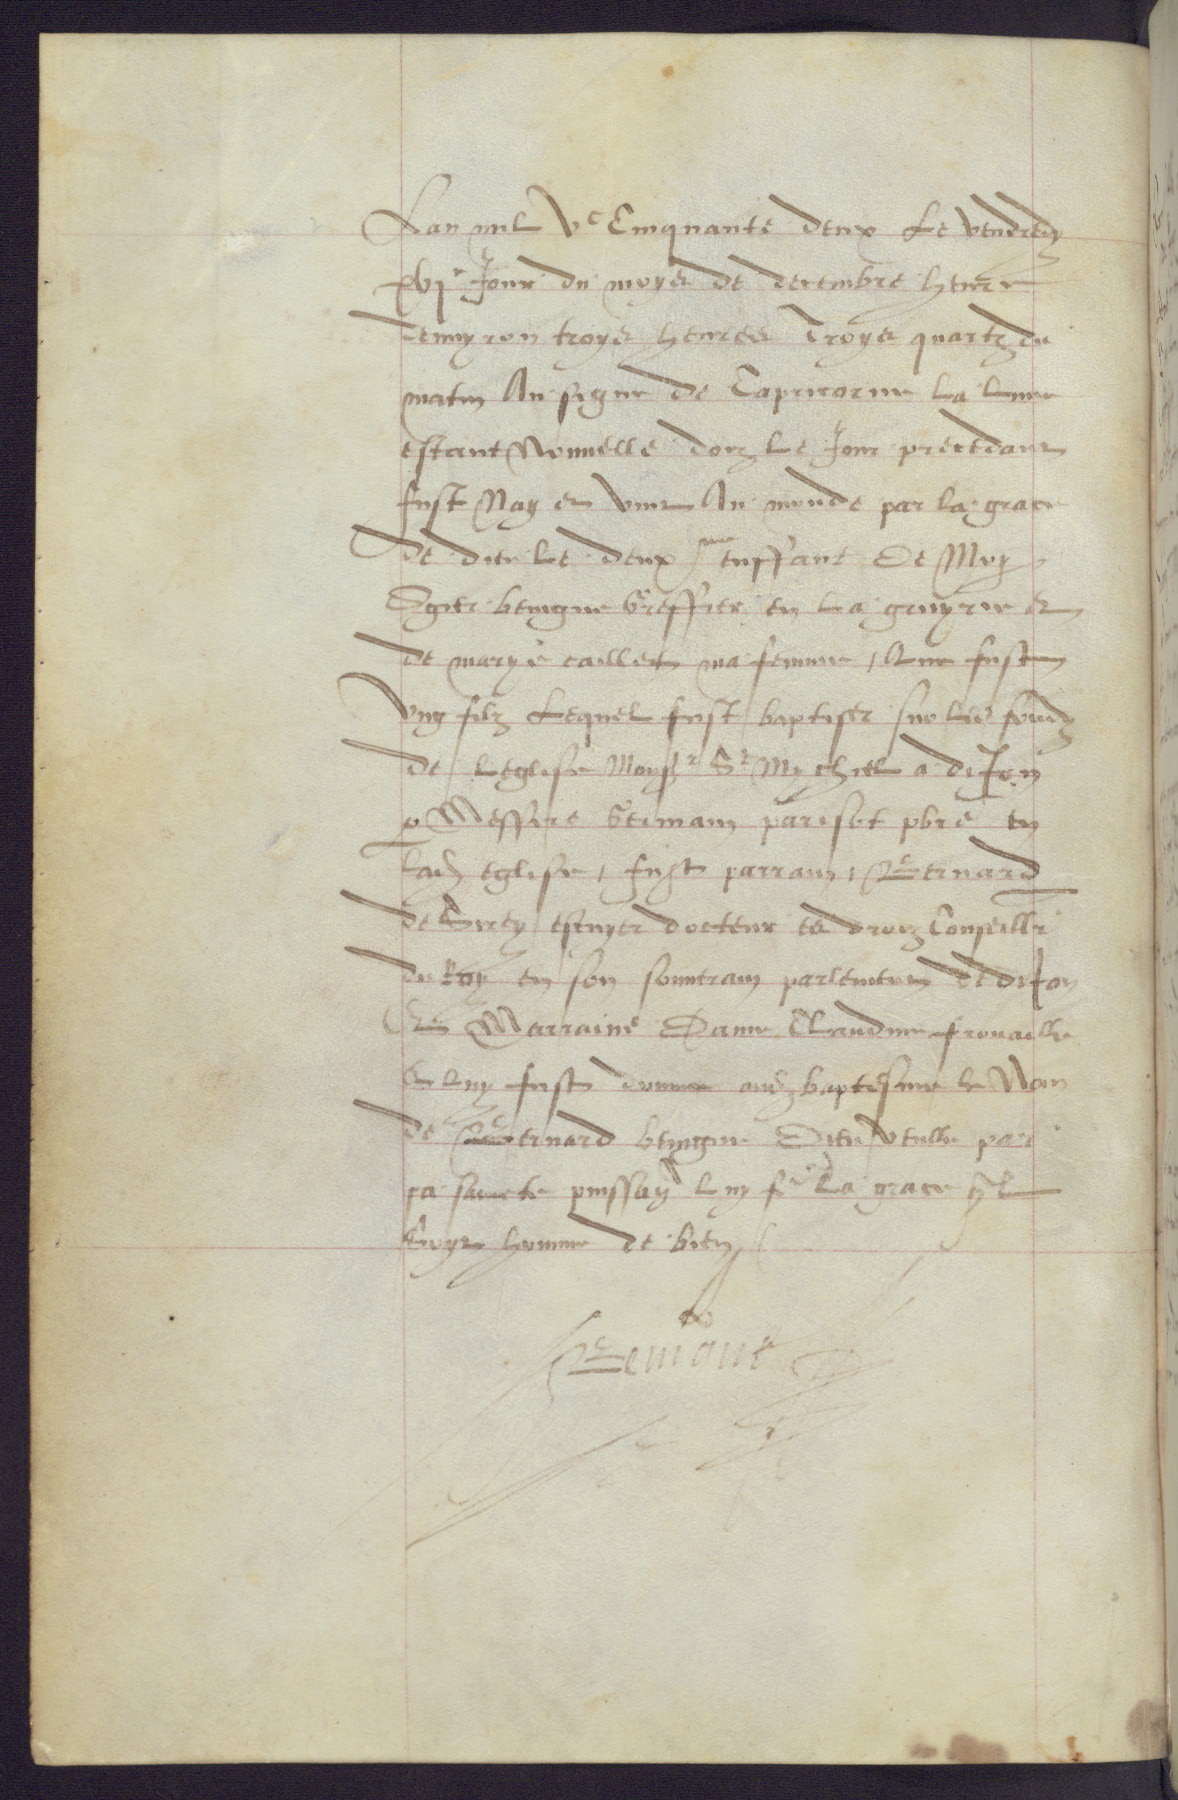 Lan mil Vc Cinquante deux Le vendredy
xvje Jour du moys de decembre heure
denvyron troys heures Troys quartz du
matin Au signe de Capricorne La Lune
estant Nouvelle dois Le Jour precedant
fust Nay et vint Au monde par la grace
de dieu le deuxme enffant De Moy
Ogier benigne Greffier en la gruyrie et
de marye caillet ma femme / Que fust
Ung filz Lequel fust baptiser sur les fondz
de Leglise Monsr St Mychiel a diJon
p Messire Germain pariset pbre en
Ladz eglise / fust parrain / Bernard
de Cirey escuyer docteur es droiz Conseillr
du Roy en son souverain parlement de diJon
Et Marraine Dame Claudine
Et luy fust donner audz baptesme le Nom
de Bernard benigne Dieu veulle par
sa saincte puissan luy fe La grace
Soyt homme de bien /
Benigne